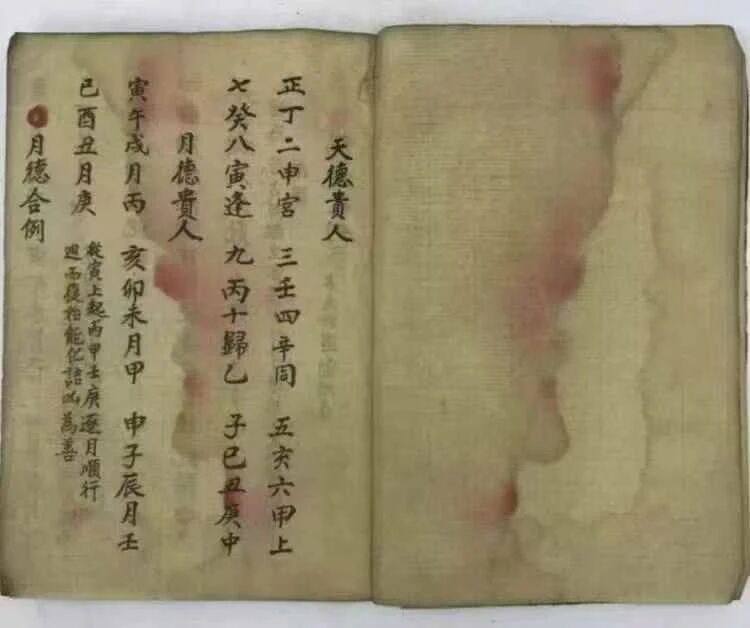 天德貴人
正丁二申宮 三壬四辛同 五亥六甲上
七癸八寅逢 九丙十歸乙 子巳丑庚中
月德貴人
寅午戌月丙 亥卯未月甲 申子辰月壬
巳酉丑月庚
從寅上起丙甲壬庚逐月順行
週而復始能化諸凶為善
月德合例